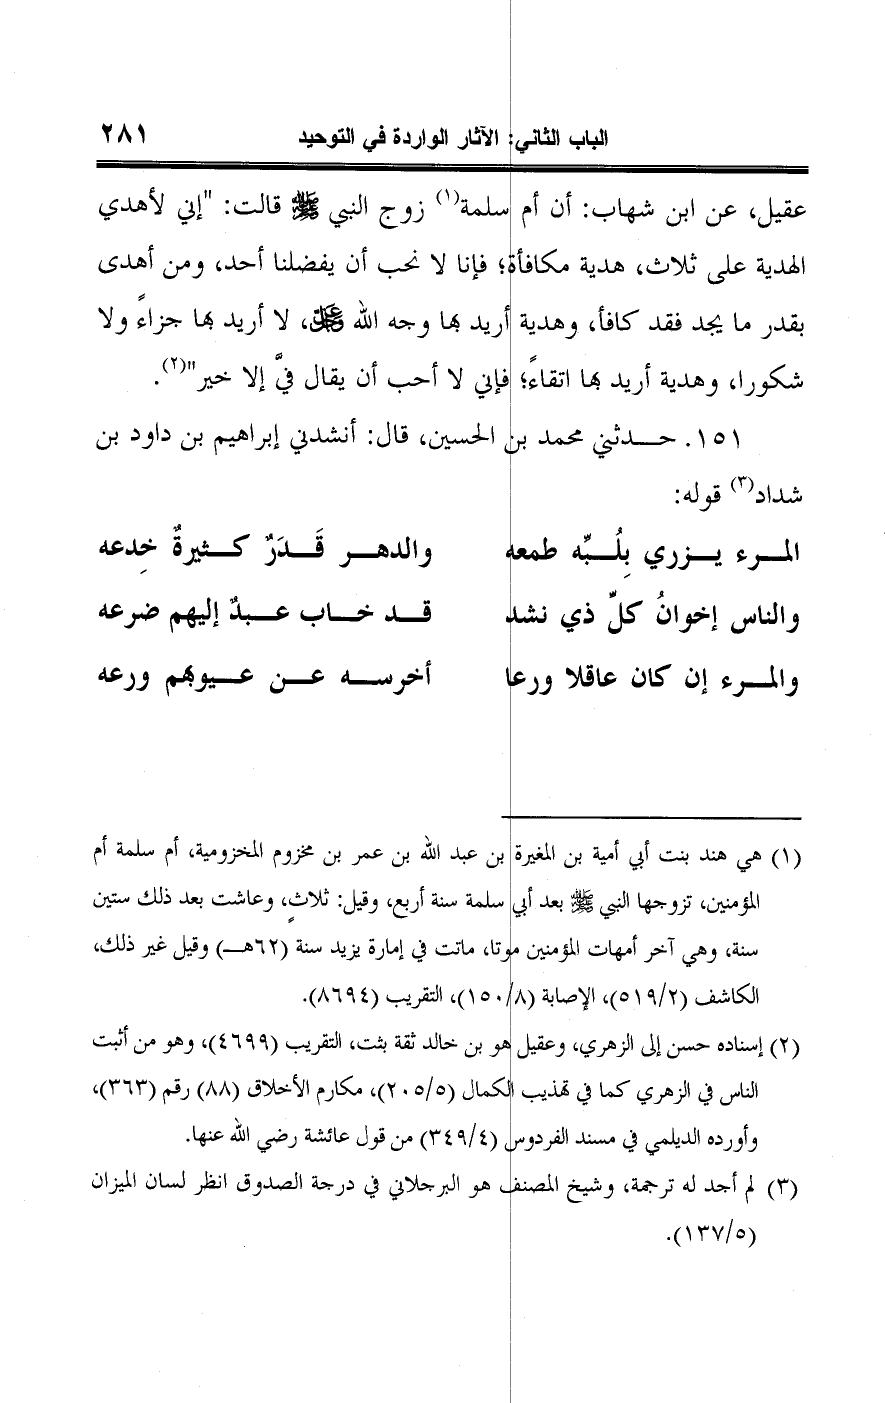 الباب الثاني: الآثار الواردة في التوحيد ٢٨١
عقيل، عن ابن شهاب: أن أم سلمة(١) زوج النبي ﷺ قالت: "إني لأهدي
الهدية على ثلاث، هدية مكافأة؛ فإنا لا نحب أن يفضلنا أحد، ومن أهدى
بقدر ما يجد فقد كافأ، وهدية أريد بها وجه الله ﷿، لا أريد بها جزاءً ولا
شكورا، وهدية أريد بها اتقاءً؛ فإني لا أحب أن يقال فيَّ إلا خير"(٢).
١٥١. حدثني محمد بن الحسين، قال: أنشدني إبراهيم بن داود بن
شداد(٣) قوله:
المرء يزري بِلُبِّه طمعه والدهر قَدَرٌ كثيرةٌ خِدعه
والناس إخوانُ كلِّ ذي نشد قد خاب عبدٌ إليهم ضرعه
والمرء إن كان عاقلا ورعا أخرسه عن عيوبهم ورعه
(١) هي هند بنت أبي أمية بن المغيرة بن عبد الله بن عمر بن مخزوم المخزومية، أم سلمة أم
المؤمنين، تزوجها النبي ﷺ بعد أبي سلمة سنة أربع، وقيل: ثلاثٍ، وعاشت بعد ذلك ستين
سنة، وهي آخر أمهات المؤمنين موتا، ماتت في إمارة يزيد سنة (٦٢هـ) وقيل غير ذلك،
الكاشف (٥١٩/٢)، الإصابة (١٥٠/٨)، التقريب (٨٦٩٤).
(٢) إسناده حسن إلى الزهري، وعقيل هو بن خالد ثقة بثت، التقريب (٤٦٩٩)، وهو من أثبت
الناس في الزهري كما في تهذيب الكمال (٢٠٥/٥)، مكارم الأخلاق (٨٨) رقم (٣٦٣)،
وأورده الديلمي في مسند الفردوس (٣٤٩/٤) من قول عائشة رضي الله عنها.
(٣) لم أجد له ترجمة، وشيخ المصنف هو البرجلاني في درجة الصدوق انظر لسان الميزان
(١٣٧/٥).